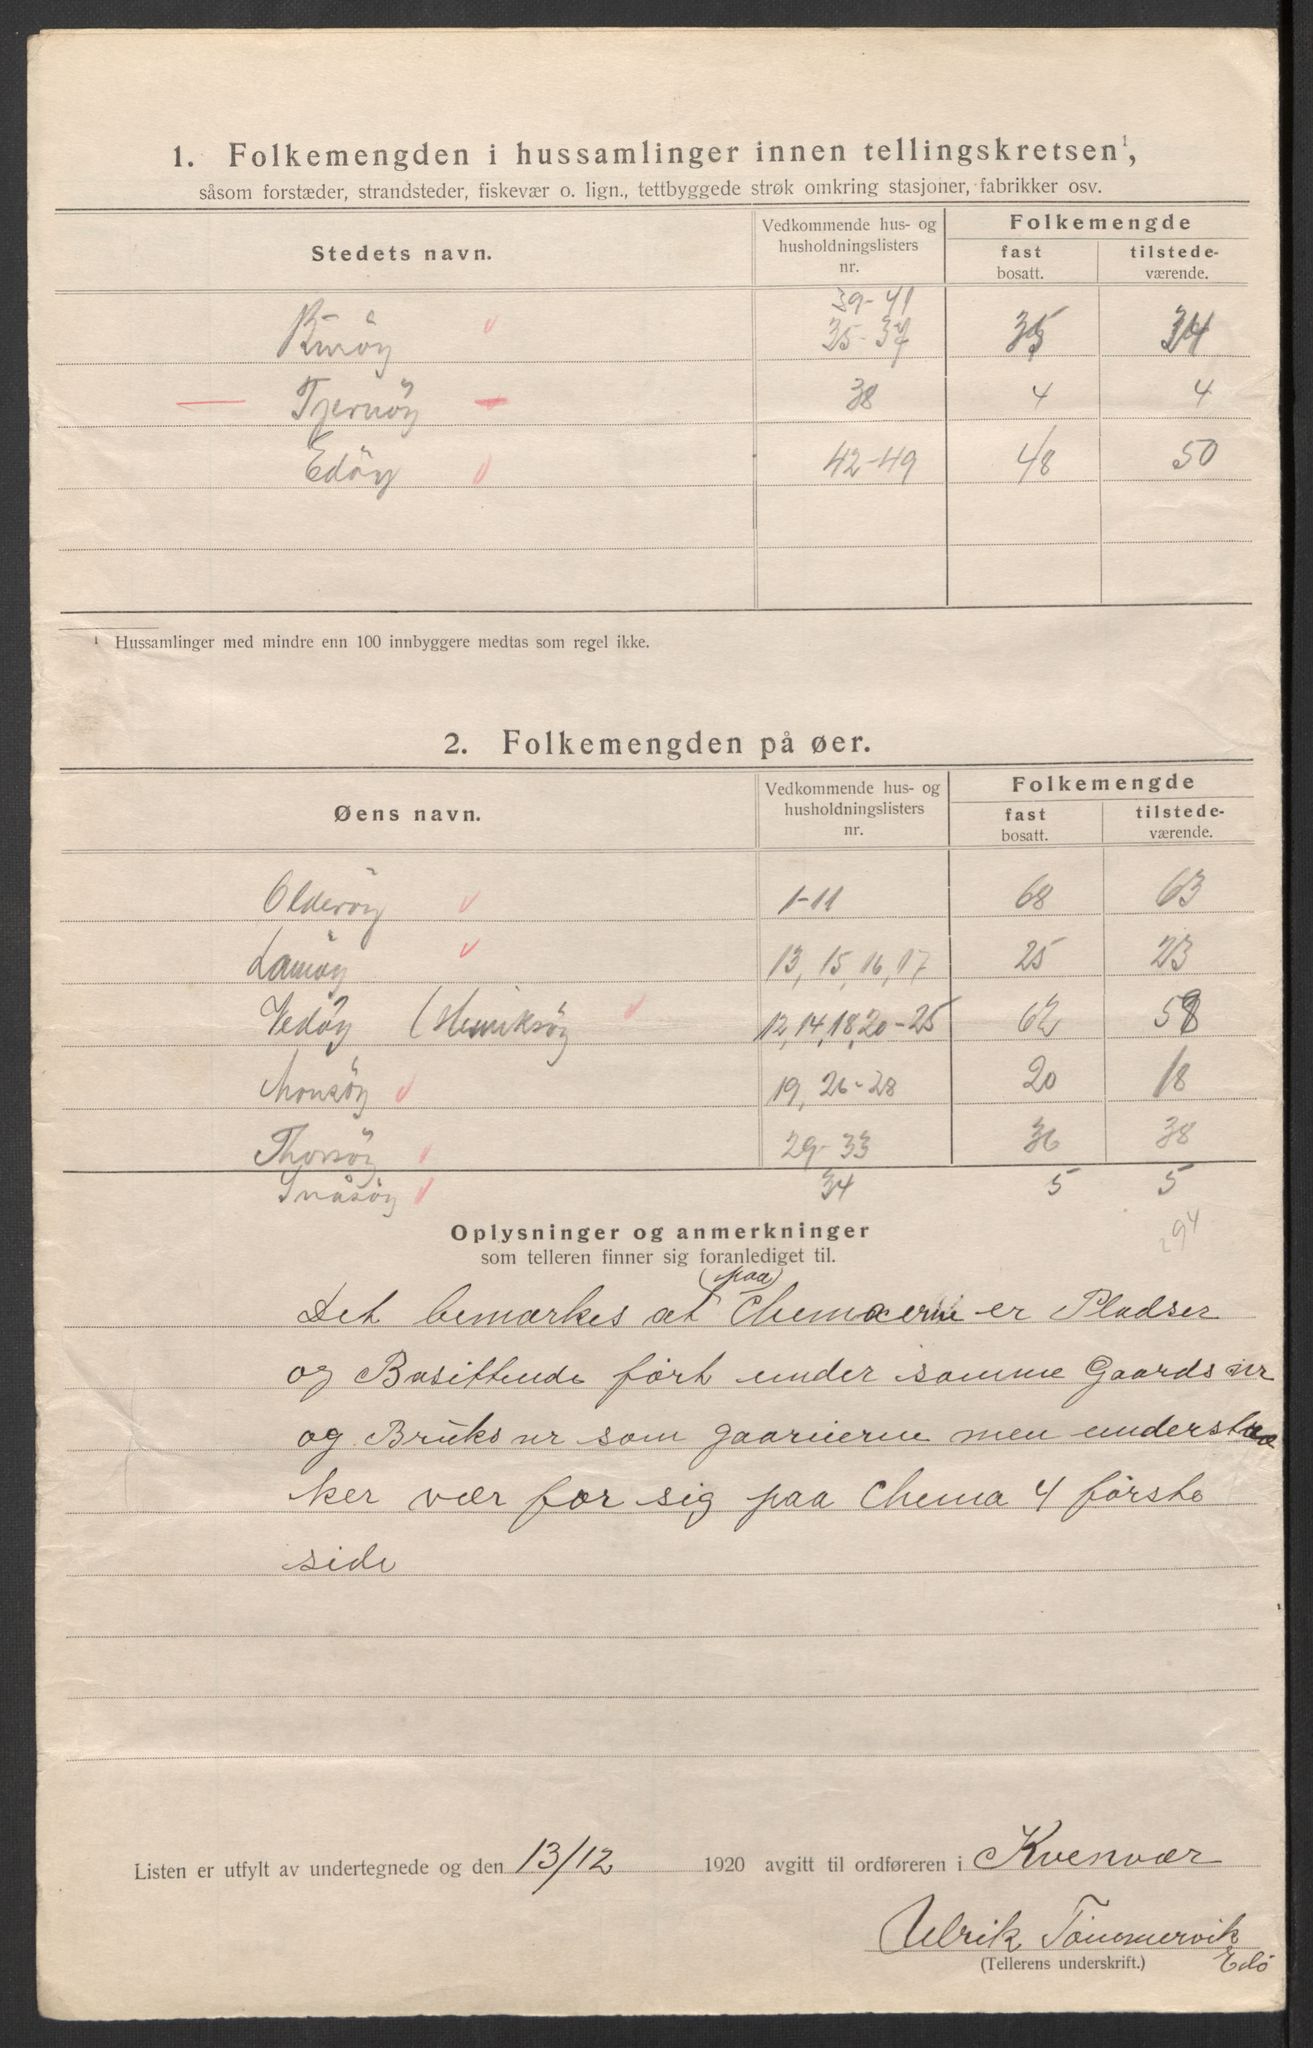 1. Folkemengden i hussamlinger innen tellingskretsen¹,
såsom forstæder, strandsteder, fiskevær o. lign., tettbyggede strøk omkring stasjoner, fabrikker osv.
Stedets navn. Vedkommende hus- og husholdningslisters nr. Folkemengde fast bosatt. tilstede-værende.
39-41
35-37 35 34
Tjernöy 38 4 4
Edöy 42-49 48 50
¹ Hussamlinger med mindre enn 100 innbyggere medtas som regel ikke.
2. Folkemengden på øer.
Øens navn. Vedkommende hus- og husholdningslisters nr. Folkemengde fast bosatt. tilstede-værende.
Olderöy 1-11 68 63
Lamöy 13, 15, 16, 17 25 23
Vedöy (Henriksöy 12, 14, 18, 20-25 62 58
Monsöy 19, 26-28 20 18
Thorsöy 29-33 36 38
34 5 5
294
Oplysninger og anmerkninger
som telleren finner sig foranlediget til.
(paa)
Det bemærkes at Chemaerne er Pladser
og Bosittende ført under samme Gaards nr
og Bruks nr som gaarderne men understræ
ker vær for sig paa Chema 4 første
side
Listen er utfylt av undertegnede og den 13/12 1920 avgitt til ordføreren i Kvenvær
Ulrik Tömmervik
(Tellerens underskrift.) Edö